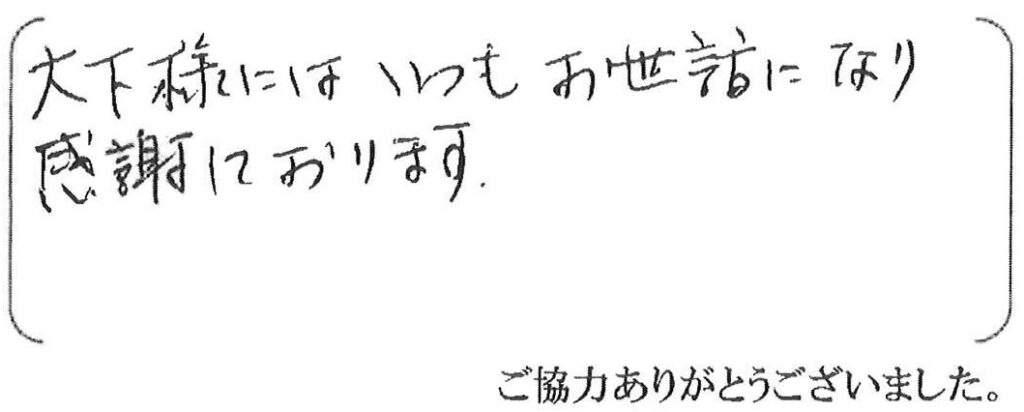 大下様にはいつもお世話になり
感謝しております.
ご協力ありがとうございました。